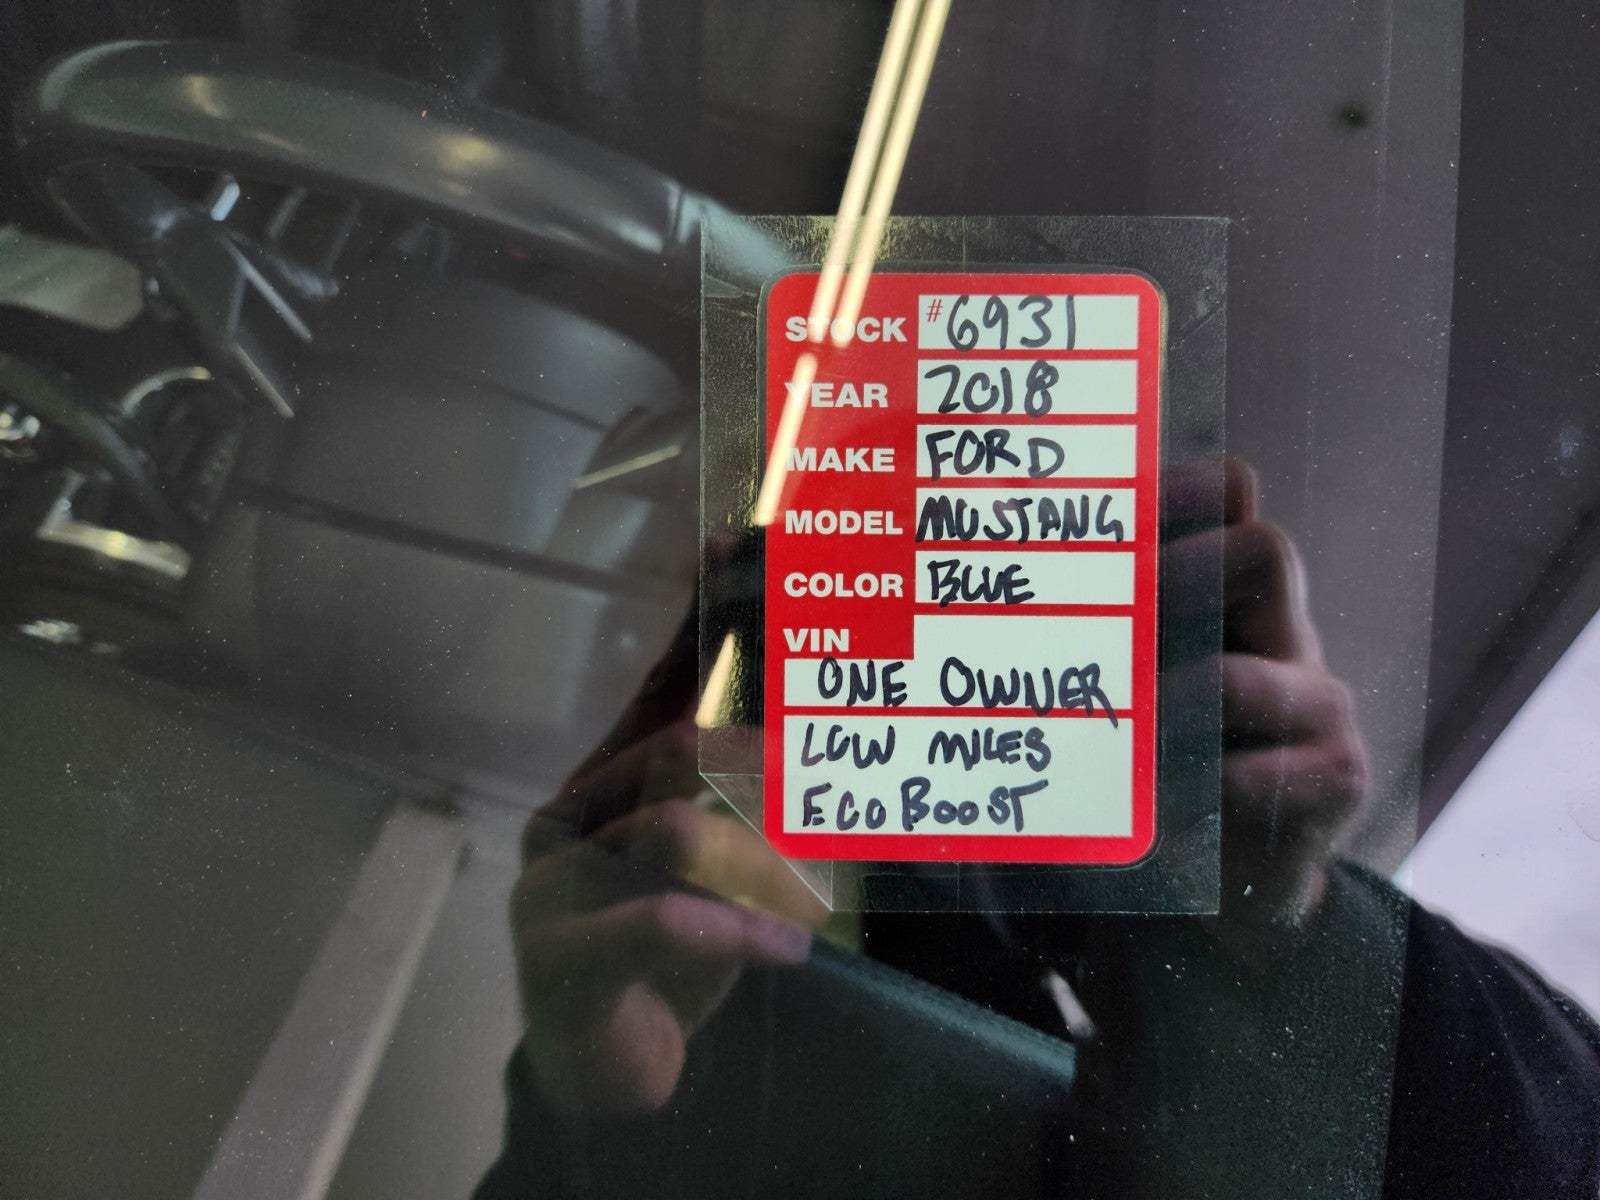 STOCK #6931
YEAR 2018
MAKE FORD
MODEL MUSTANG
COLOR BLUE
VIN
ONE OWNER
LOW MILES
ECOBOOST